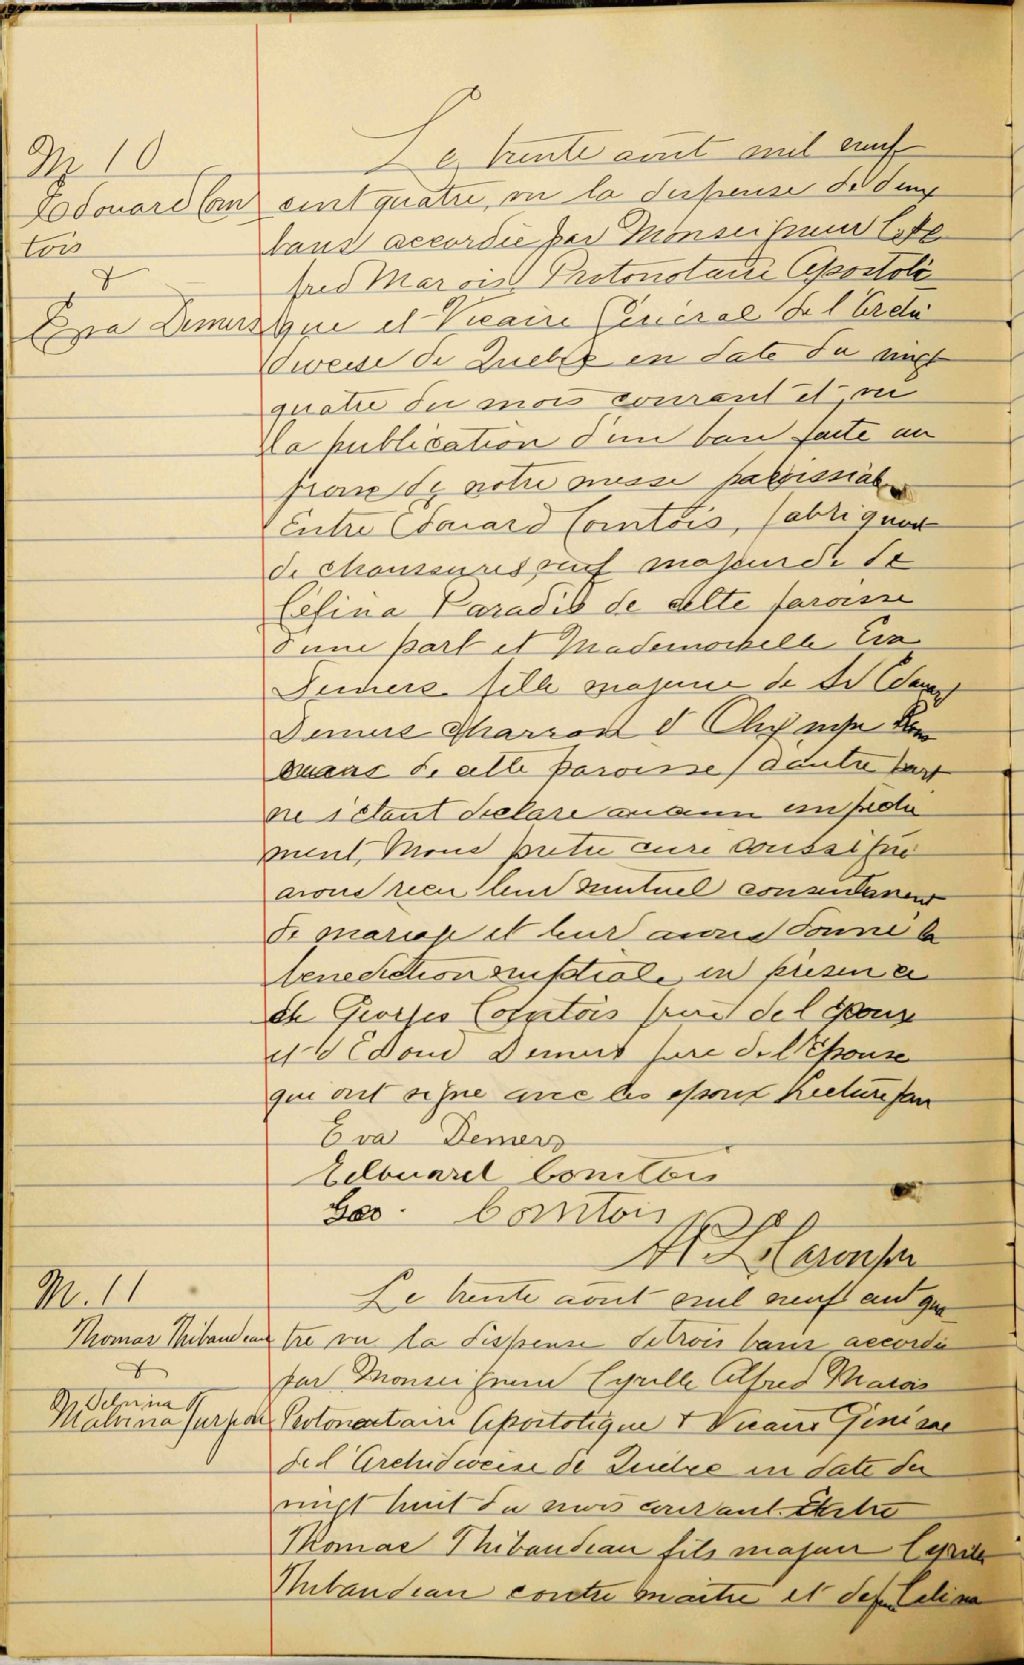 M 10
Edouard Com
tois
&
Eva Demers
Le trente aout mil neuf
cent quatre, vu la dispense de deux
bans accordée par Monseigneur C. Al
fred Marois, Protonotaire Apostoli
que et Vicaire Général de l'Archi
diocese de Quebec en date du vingt
quatre du mois courant et vu
la publication d'un ban faite au
prone de notre messe paroissiale
Entre Edouard Comtois, fabriquant
de chaussures, veuf majeur de de
Célina Paradis de cette paroisse
d'une part et Mademoiselle Eva
Demers fille majeure de Sr Edouard
Demers charron et Olympe
de cette paroisse d'autre part
ne s'étant declare aucun empechi
ment, Nous pretre curé soussigné
avons recu leur mutuel consentement
de mariage et leur avons donné la
benediction nuptiale en présence
de Georges Comtois frere de l'epoux
et d'Edoud Demers pere de l'Epouse
qui ont signe avec les epoux Lecture fau
Eva Demers
Edouard Comtois
Geo. Comtois
H. L. Caron ptr
M. 11
Thomas Thibaudeau
&
Delvina
Malvina Turgeon
Le trente aout mil neuf cent qua
tre vu la dispense de trois bans accordée
par Monseigneur Cyrille Alfred Marois
Protonotaire Apostolique & Vicaire Général
de l'Archidiocèse de Québec en date du
vingt huit du mois courant. Entre
Thomas Thibaudeau fils majeur Cyrille
Thibaudeau contre maitre et de feu Celina